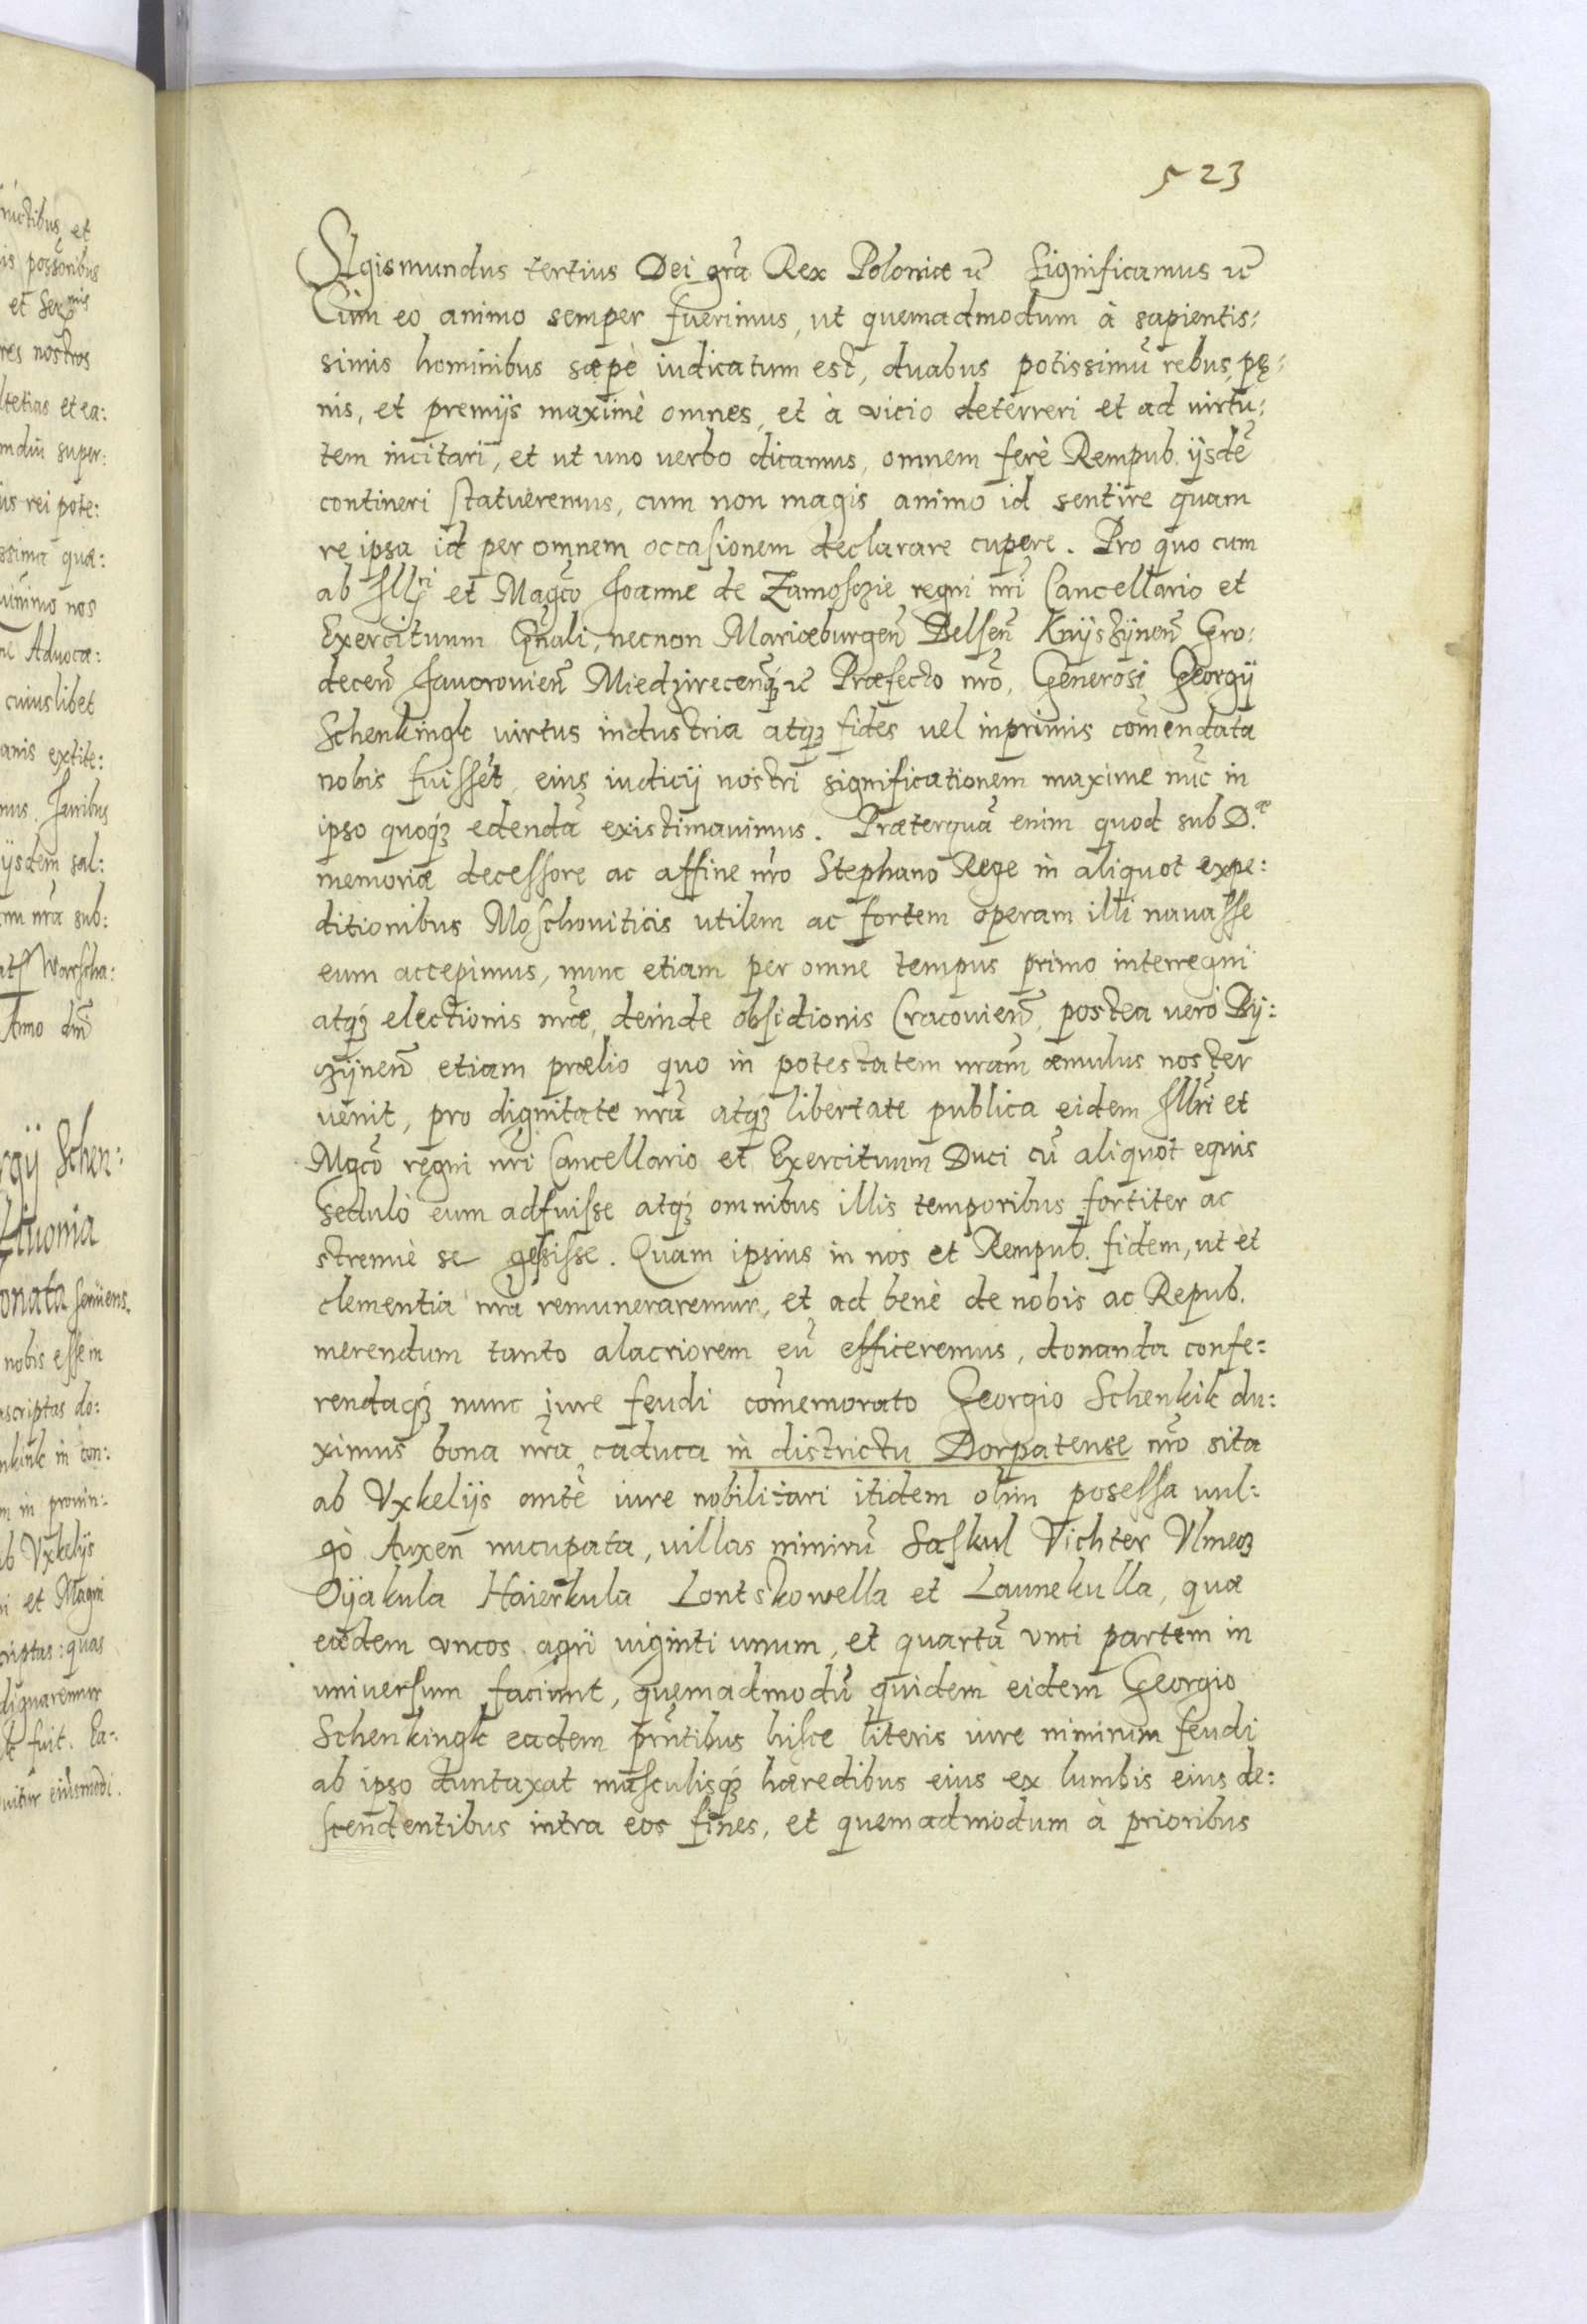 523
SIgismundus tertius Dei gr̃a Rex Poloniæ ꝛc Significamus ꝛc
Cùm eo animo semper fuerimus, ut quemadmodum à sapientis:
simis hominibus sæpè iudicatum est, duabus potissimũ rebus, pę:
nis, et premijs maximè omnes, et à vicio deterreri et ad virtu:
tem incitari, et ut uno uerbo dicamus, omnem ferè Rempub. ijsdẽ
contineri statueremus, cum non magis animo id sentire quam
re ipsa id per omnem occasionem declarare cupere. Pro quo cum
ab Illri et Magco Joanne de Zamosczie regni nr̃i Cancellario et
Exercituum Gñali, necnon Mariæburgeñ Belseñ Knijszijneñ Gro:
deceñ Jauorouieñ Miedzireceñqȝ ꝛc Præfecto nr̃o, Generosi Georgij
Schenkingk uirtus industria atqȝ fides uel inprimis com̃endata
nobis fuisset, eius iudicij nostri significationem maxime nũc in
ipso quoqȝ edendã existimauimus. Præterquã enim quod sub D.æ
memoriæ decessore ac affine nr̃o Stephano Rege in aliquot expe:
ditionibus Moschouiticis utilem ac fortem operam illi nauasse
eum accepimus, nunc etiam per omne tempus primo interregni
atqȝ electionis nr̃æ, deinde obsidionis Cracouieñ, postea uerò Bij:
zijneñ etiam prælio quo in potestatem nr̃am æmulus noster
uenit, pro dignitate nr̃a atqȝ libertate publica eidem Illri et
Mgco regni nr̃i Cancellario et Exercituum Duci cũ aliquot equis
sedulò eum adfuisse atqȝ omnibus illis temporibus fortiter ac
strenuè se gessisse. Quam ipsius in nos et Rempub. fidem, ut et
clementia nr̃a remuneraremur, et ad benè de nobis ac Repub.
merendum tanto alacriorem eũ efficeremus, donanda confe:
rendaqȝ nunc iure feudi com̃emorato Georgio Schenkik du:
ximus bona nr̃a caduca in districtu Dorpatense nr̃o sita
ab Vxkelijs antè iure nobilitari itidem olim posessa uul:
gò Auxeñ nucupata, uillas nimirũ Saskul Vichter Vlmeoz
Oijakula Haierkula Lontskowella et Launekulla, quæ
eædem vncos agri uiginti unum, et quartã vnci partem in
uniuersum faciunt, quemadmodũ quidem eidem Georgio
Schenkingk eadem pr̃ntibus hisce literis iure nimirum feudi
ab ipso duntaxat masculisqȝ hæredibus eius ex lumbis eius de:
scendentibus intra eos fines, et quemadmodum à prioribus